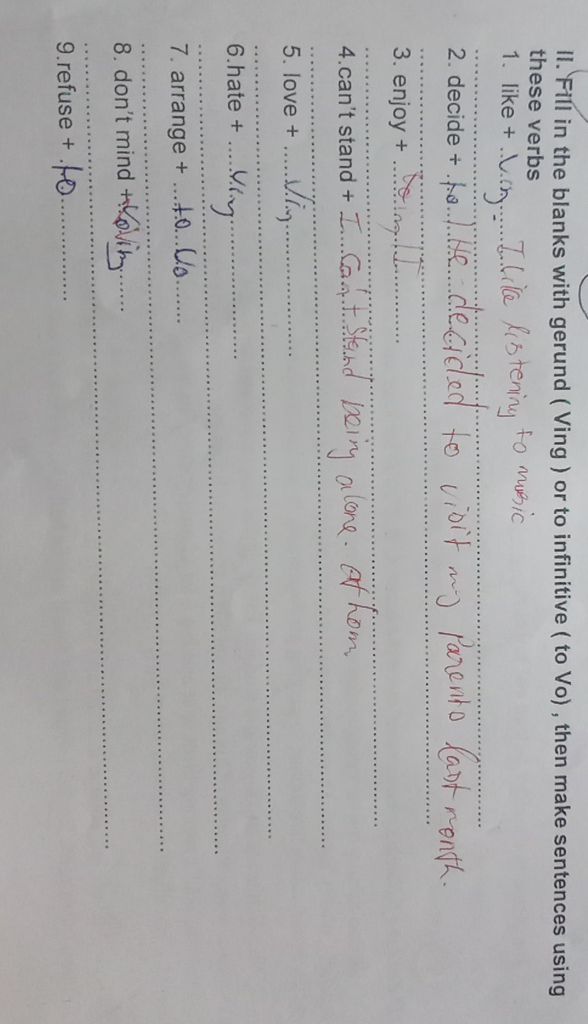 II. Fill in the blanks with gerund ( Ving ) or to infinitive ( to Vo) , then make sentences using
these verbs
1. like + Ving. I like listening to music
2. decide + to / He decided to visit my parents last month.
3. enjoy +
4.can't stand + I can't stand being alone. at hom
5. love + Ving
6.hate + Ving
7. arrange + to Vo
8. don't mind + Ving
9.refuse + to